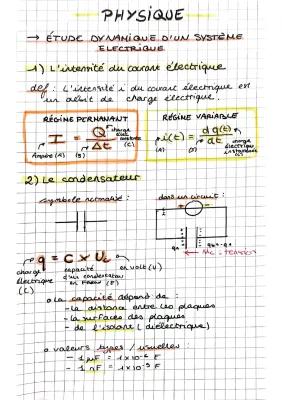 PHYSIQUE
→ ÉTUDE DYNAMIQUE D'UN SYSTÈME
ELECTRIQUE
1) L'intensité du courant électrique
def : L'intensité i du courant électrique est
un débit de charge électrique.
RÉGIME PERMANANT
I = Q / Δt
charge
constante
(C)
Ampère (A) (s)
RÉGIME VARIABLE
i(t) = dq(t) / dt
(A) (s)
charge
électrique
instantanée
(C)
2) Le condensateur
symbole normalisé :
dans un circuit :
q = C × Uc
charge
électrique
(C)
capacité
d'un condensateur
en Farad (F)
en volt (V)
o la capacité dépend de :
- la distance entre les plaques
- la surfaces des plaques
- de l'isolant (dielectrique)
o valeurs types / usuelles :
- 1 μF = 1×10⁻⁶ F
- 1 nF = 1×10⁻⁹ F